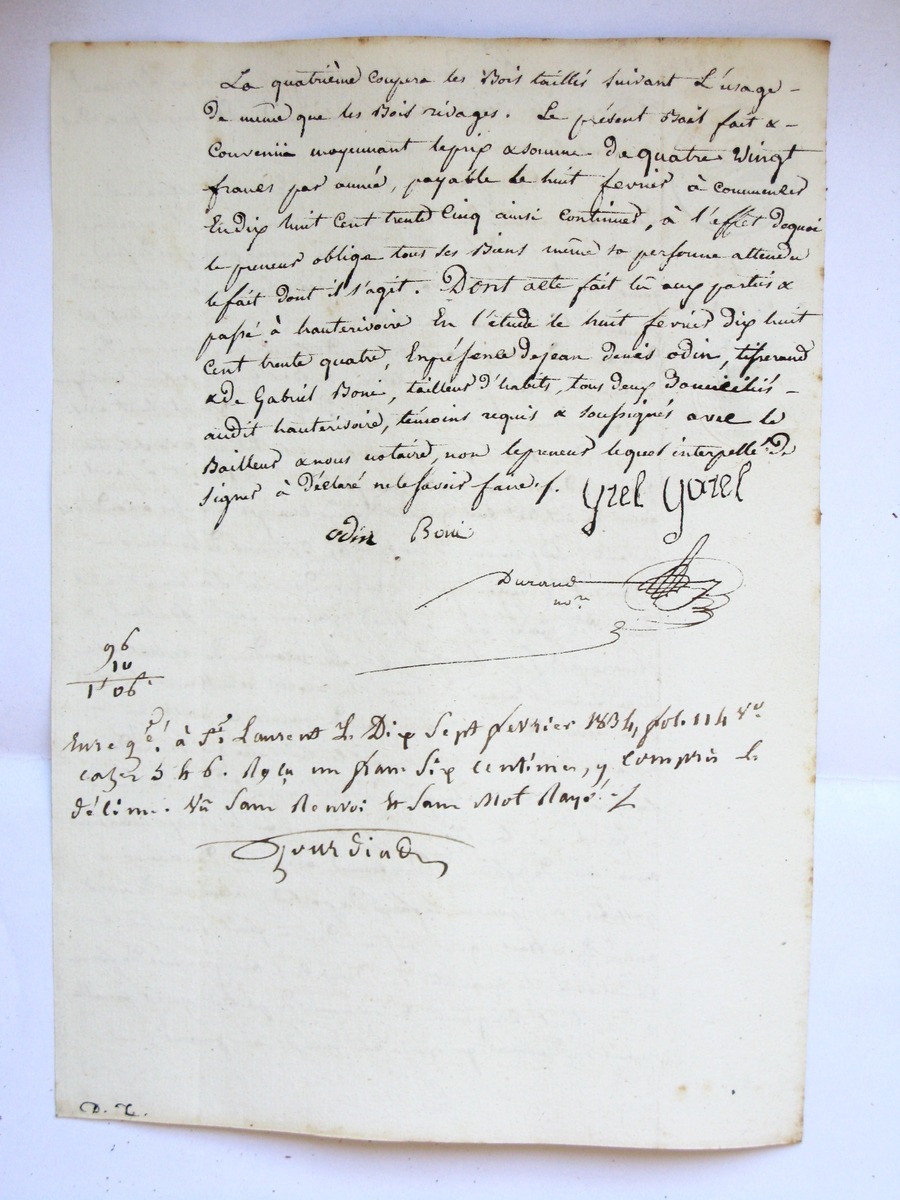 La quatrième coupera les Bois taillis suivant L'usage -
de même que les Bois rivages. Le présent Bail fait &-
Convenüe moyennant leprix & somme de quatre Vingt
francs par année, payable le huit fevrier à commencer
En dix huit Cent trente Cinq ainsi Continuer, à l'effet dequoi
le preneur oblige tous ses Biens même sa personne attendu
le fait dont il s'agit. Dont acte fait lû aux parties &
passé à hauterivoire En l'étude le huit fevrier dix huit
Cent trente quatre, En présence de jean denis odin, tisserand
& de Gabriel Boni, tailleur d'habits, tous deux Domiciliés -
audit hauterivoire, témoins requis & soussignés avec le
Bailleur & nous notaire, non le preneur lequel interpellé de
signer à Déclaré ne le savoir faire /.
odin Boni
Durand
no.re
96
10
1f 06c
Enregé. à St. Laurent le Dix Sept fevrier 1834, fol. 114 vo.
cazes 5 & 6. Reçu un franc Six centimes, y compris le
décime. Vû Sans Renvoi et Sans Mot Rayé./
D. L.